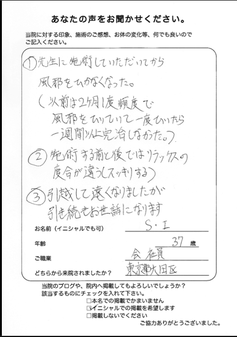 あなたの声をお聞かせください。
当院に対する印象、施術のご感想、お体の変化等、何でも良いので
ご記入ください。
①先生に施術していただいてから
風邪をひかなくなった。
(以前は2ヶ月に1度頻度で
風邪をひいていて一度ひいたら
一週間以上完治しなかった。)
②施術する前と後ではリラックスの
度合が違う(スッキリする)
③引越して遠くなりましたが
引き続きお世話になります
お名前(イニシャルでも可) S・I
年齢 37 歳
ご職業 会社員
どちらから来院されましたか? 東京都大田区
当院のブログや、院内へ掲載してもよろしいでしょうか?
該当するものにチェックを入れて下さい。
□本名での掲載でかまいません
□イニシャルでの掲載を希望します
□掲載しないでください
ご協力ありがとうございました。